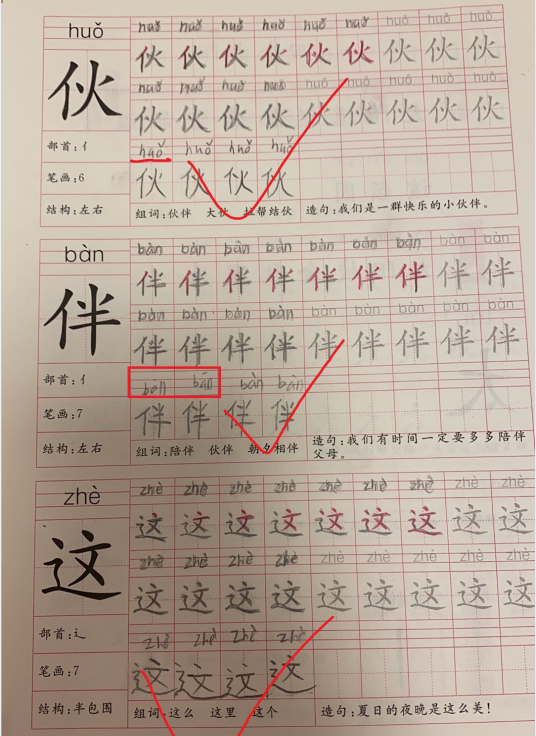 huǒ huǒ huǒ huǒ huǒ huǒ huǒ huǒ huǒ huǒ
伙 伙 伙 伙 伙 伙 伙 伙 伙 伙
huǒ huǒ huǒ huǒ huǒ huǒ huǒ huǒ huǒ
伙 伙 伙 伙 伙 伙 伙 伙 伙
部首:亻 huǒ huǒ huǒ huǒ
笔画:6 伙 伙 伙 伙
结构:左右 组词:伙伴 大伙 拉帮结伙 造句:我们是一群快乐的小伙伴。
bàn bàn bàn bàn bàn bàn bàn bàn bàn bàn
伴 伴 伴 伴 伴 伴 伴 伴 伴 伴
bàn bàn bàn bàn bàn bàn bàn bàn bàn
伴 伴 伴 伴 伴 伴 伴 伴 伴
部首:亻 bān bān bàn bàn
笔画:7 伴 伴 伴 伴
结构:左右 组词:陪伴 伙伴 朝夕相伴 造句:我们有时间一定要多多陪伴
父母。
zhè zhè zhè zhè zhè zhè zhè zhè zhè zhè
这 这 这 这 这 这 这 这 这 这
zhè zhè zhè zhè zhè zhè zhè zhè zhè
这 这 这 这 这 这 这 这 这
部首:辶 zhè zhè zhè zhè
笔画:7 这 这 这 这
结构:半包围 组词:这么 这里 这个 造句:夏日的夜晚是这么美!